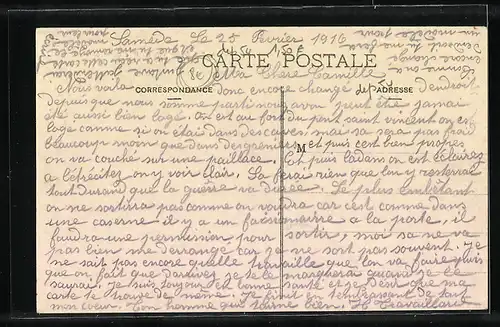 Samedi Le 25 Février 1916
CARTE POSTALE
CORRESPONDANCE
ADRESSE
Ma Chère Camille
Nous voila donc encore change d'endroit
depuis que nous somme parti nous avon jamai
été aussi bien logé. on est au fort du pont saint vincent on est
logé comme si on était dans des caves, mai sa sera pas froid
beaucoup moin que dans des greniers et puis cest bien propre
M
on va couché sur une paillace. Et puis ladans on est éclairez
a lélécitez on y voir clair. Sa ferai rien que lon y resterrai
tout durand que la guerre va durée. Le plus embêtant
on ne sortirra pas comme on voudra car cest comme dans
une caserne il y a un factionnairre a la porte, il
faudra une permission pour sortir, moi sa ne va
pas bien me derrange car je ne sort pas souvent. Je
ne sait pas encore quelle travaille que lon va faire
que on fait que darrivez je te le marquera quand je le
saurai. Je suis toujour en bonne santé et je désir que ma
carte te trouve de même. Je finit en tembrassant de tout
mon coeur. Ton homme qui taime bien. G. Travaillard